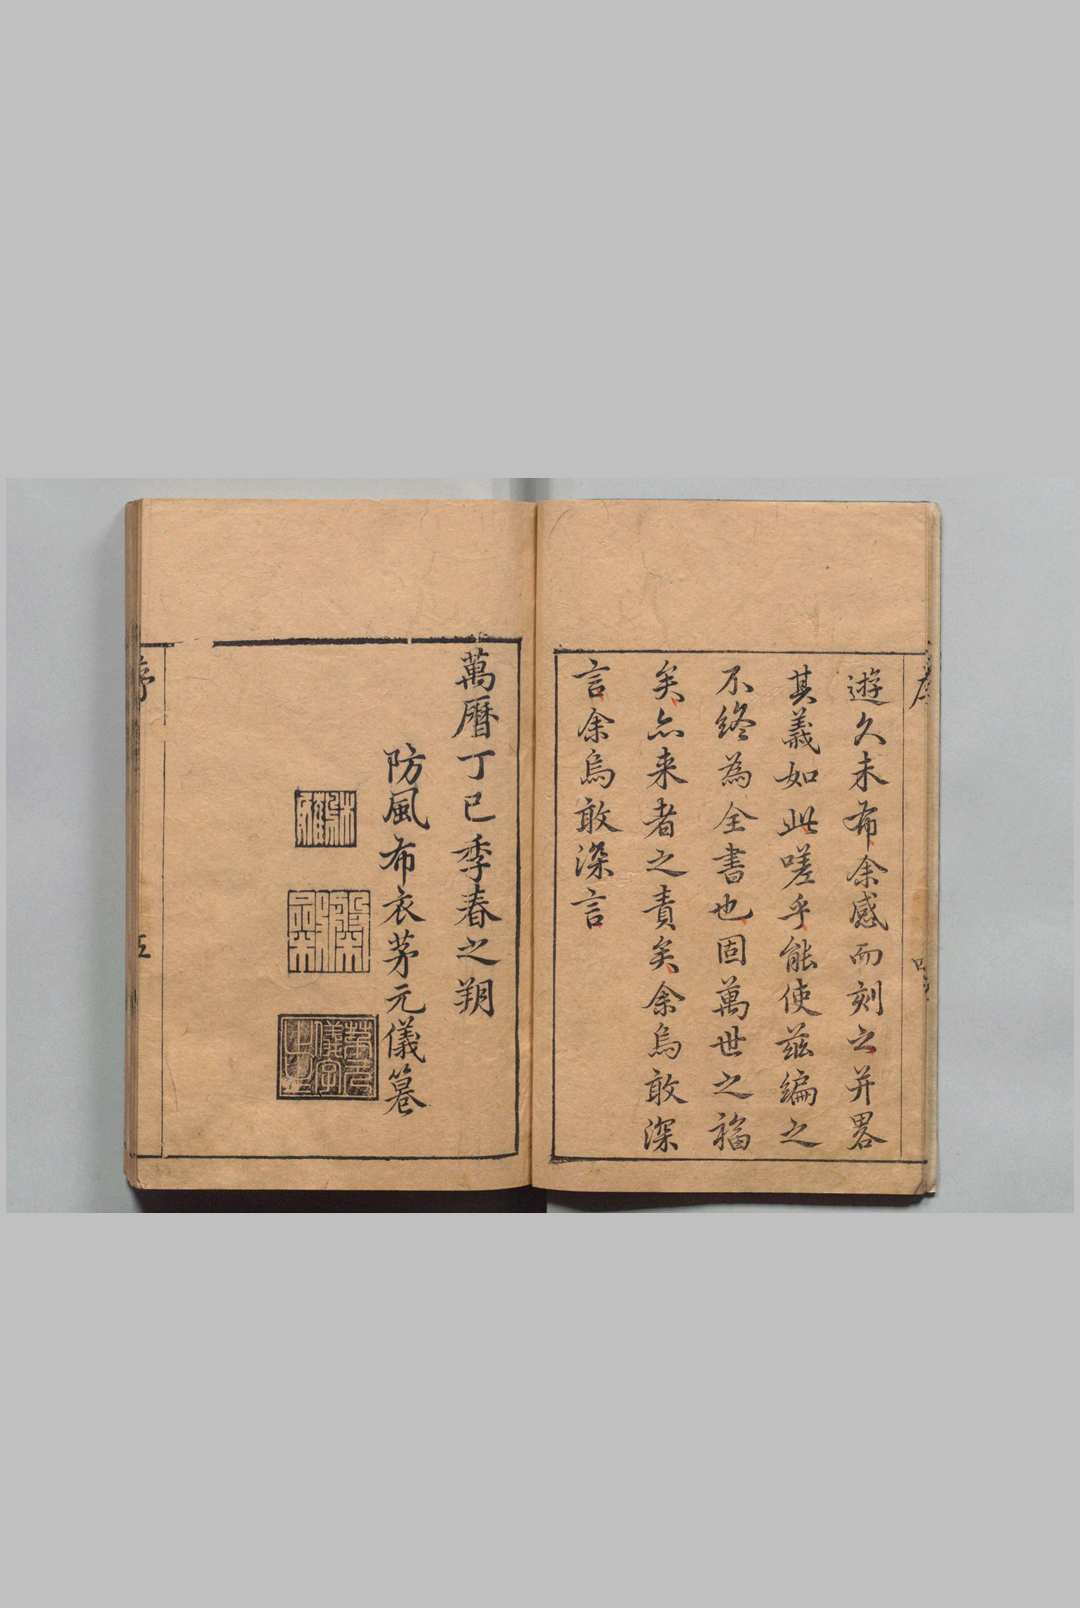 遊久未布余感而刻之并畧
其義如此嗟乎能使茲編之
不終為全書也固萬世之福
矣亦来者之責矣余烏敢深
言余烏敢深言
萬曆丁巳季春之朔
防風布衣茅元儀篹
茅元
儀字
止生
序
五